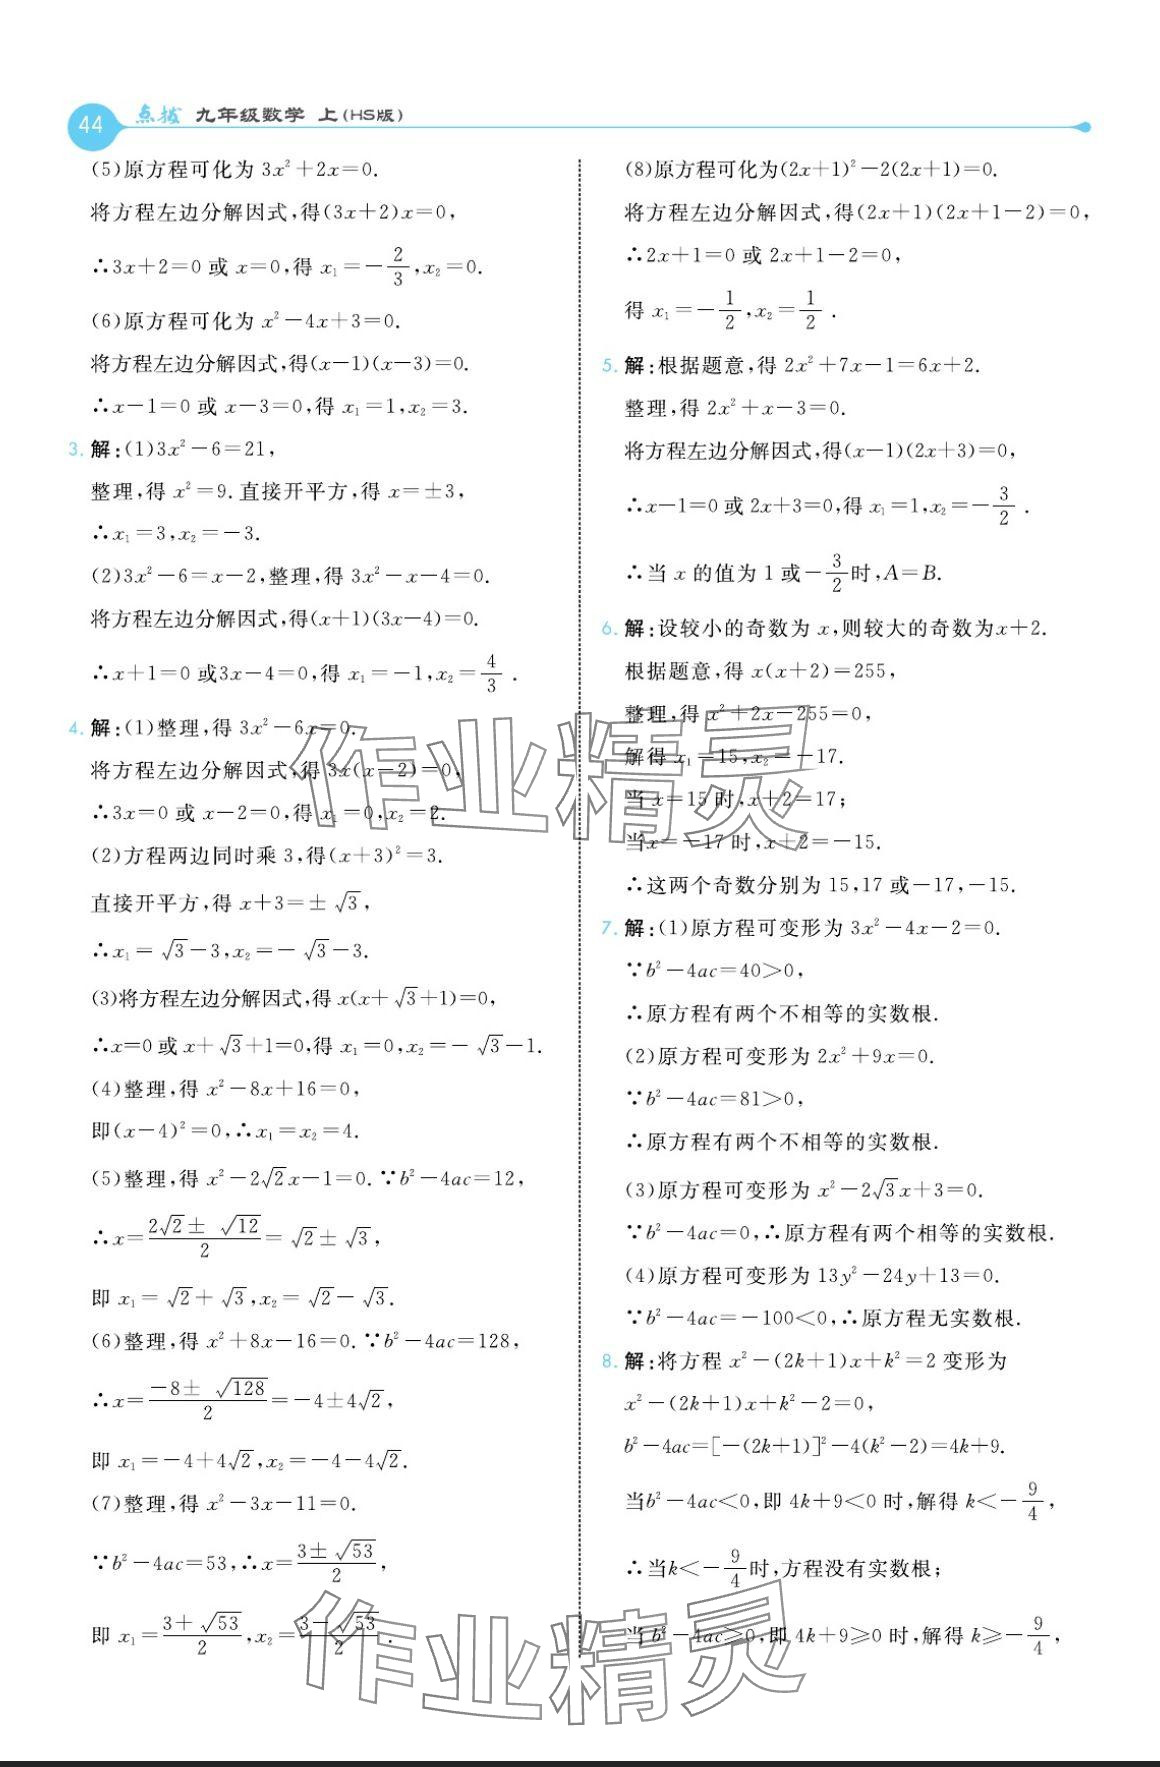 44 点拨 九年级数学 上(HS版)
(5)原方程可化为 3x²+2x=0.
将方程左边分解因式,得(3x+2)x=0,
∴3x+2=0 或 x=0,得 x₁=-2/3,x₂=0.
(6)原方程可化为 x²-4x+3=0.
将方程左边分解因式,得(x-1)(x-3)=0.
∴x-1=0 或 x-3=0,得 x₁=1,x₂=3.
3. 解:(1)3x²-6=21,
整理,得 x²=9.直接开平方,得 x=±3,
∴x₁=3,x₂=-3.
(2)3x²-6=x-2,整理,得 3x²-x-4=0.
将方程左边分解因式,得(x+1)(3x-4)=0.
∴x+1=0 或3x-4=0,得 x₁=-1,x₂=4/3.
4. 解:(1)整理,得 3x²-6x=0.
将方程左边分解因式,得 3x(x-2)=0,
∴3x=0 或 x-2=0,得 x₁=0,x₂=2.
(2)方程两边同时乘 3,得(x+3)²=3.
直接开平方,得 x+3=±√3,
∴x₁=√3-3,x₂=-√3-3.
(3)将方程左边分解因式,得 x(x+√3+1)=0,
∴x=0 或 x+√3+1=0,得 x₁=0,x₂=-√3-1.
(4)整理,得 x²-8x+16=0,
即(x-4)²=0,∴x₁=x₂=4.
(5)整理,得 x²-2√2x-1=0.∵b²-4ac=12,
∴x=(2√2±√12)/2=√2±√3,
即 x₁=√2+√3,x₂=√2-√3.
(6)整理,得 x²+8x-16=0.∵b²-4ac=128,
∴x=(-8±√128)/2=-4±4√2,
即 x₁=-4+4√2,x₂=-4-4√2.
(7)整理,得 x²-3x-11=0.
∵b²-4ac=53,∴x=(3±√53)/2,
即 x₁=(3+√53)/2,x₂=(3-√53)/2.
(8)原方程可化为(2x+1)²-2(2x+1)=0.
将方程左边分解因式,得(2x+1)(2x+1-2)=0,
∴2x+1=0 或 2x+1-2=0,
得 x₁=-1/2,x₂=1/2.
5. 解:根据题意,得 2x²+7x-1=6x+2.
整理,得 2x²+x-3=0.
将方程左边分解因式,得(x-1)(2x+3)=0,
∴x-1=0 或 2x+3=0,得 x₁=1,x₂=-3/2.
∴当 x 的值为 1 或-3/2时,A=B.
6. 解:设较小的奇数为 x,则较大的奇数为x+2.
根据题意,得 x(x+2)=255,
整理,得 x²+2x-255=0,
解得 x₁=15,x₂=-17.
当 x=15 时,x+2=17;
当x=-17 时,x+2=-15.
∴这两个奇数分别为 15,17 或-17,-15.
7. 解:(1)原方程可变形为 3x²-4x-2=0.
∵b²-4ac=40>0,
∴原方程有两个不相等的实数根.
(2)原方程可变形为 2x²+9x=0.
∵b²-4ac=81>0,
∴原方程有两个不相等的实数根.
(3)原方程可变形为 x²-2√3x+3=0.
∵b²-4ac=0,∴原方程有两个相等的实数根.
(4)原方程可变形为 13y²-24y+13=0.
∵b²-4ac=-100<0,∴原方程无实数根.
8. 解:将方程 x²-(2k+1)x+k²=2 变形为
x²-(2k+1)x+k²-2=0,
b²-4ac=[-(2k+1)]²-4(k²-2)=4k+9.
当b²-4ac<0,即 4k+9<0 时,解得 k<-9/4,
∴当k<-9/4时,方程没有实数根;
当 b²-4ac≥0,即 4k+9≥0 时,解得 k≥-9/4,
作业精灵
作业精灵